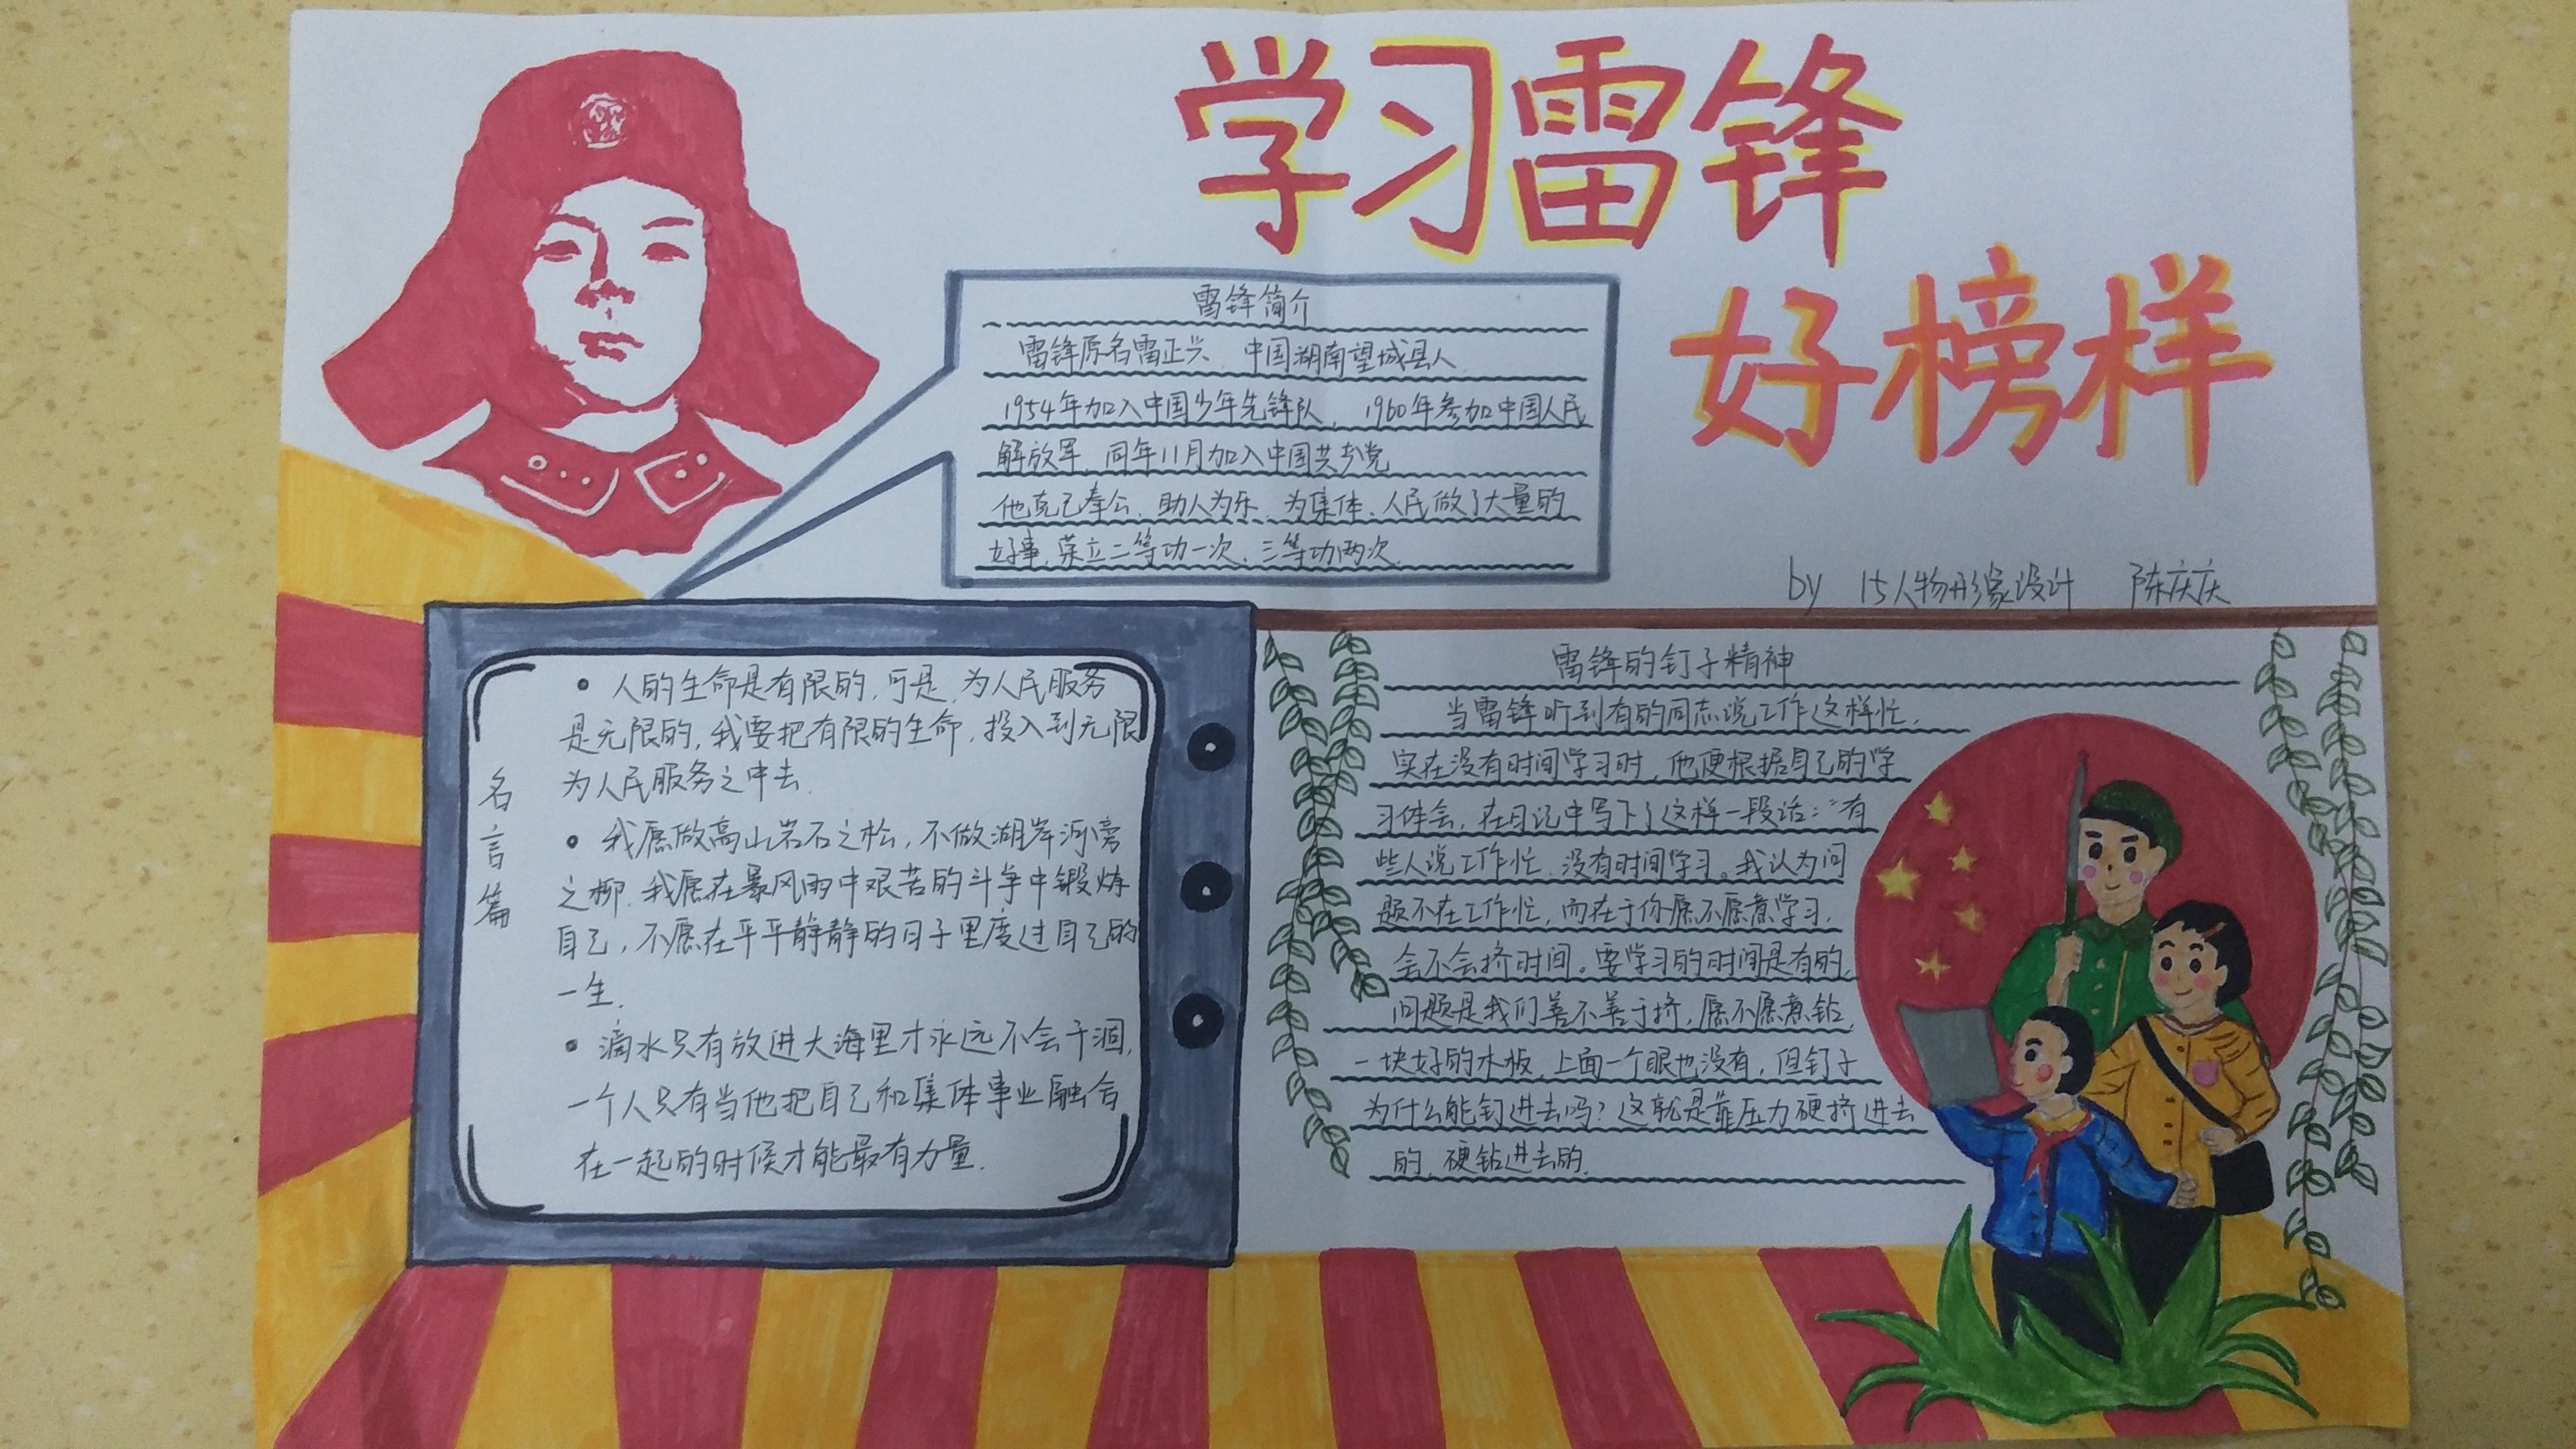 学习雷锋
好榜样
雷锋简介
雷锋原名雷正兴、中国湖南望城县人
1954年加入中国少年先锋队、1960年参加中国人民
解放军、同年11月加入中国共产党
他克己奉公、助人为乐、为集体、人民做了大量的
好事、荣立二等功一次、三等功两次
by 15人物形象设计 陈庆庆
名言篇
• 人的生命是有限的,可是,为人民服务
是无限的,我要把有限的生命,投入到无限
为人民服务之中去.
• 我愿做高山岩石之松,不做湖岸河旁
之柳.我愿在暴风雨中艰苦的斗争中锻炼
自己,不愿在平平静静的日子里度过自己的
一生.
• 滴水只有放进大海里才永远不会干涸,
一个人只有当他把自己和集体事业融合
在一起的时候才能最有力量.
雷锋的钉子精神
当雷锋听到有的同志说工作这样忙,
实在没有时间学习时,他便根据自己的学
习体会,在日记中写下了这样一段话:“有
些人说工作忙、没有时间学习。我认为问
题不在工作忙,而在于你愿不愿意学习,
会不会挤时间。要学习的时间是有的,
问题是我们善不善于挤,愿不愿意钻,
一块好的木板,上面一个眼也没有,但钉子
为什么能钉进去吗?这就是靠压力硬挤进去
的、硬钻进去的.